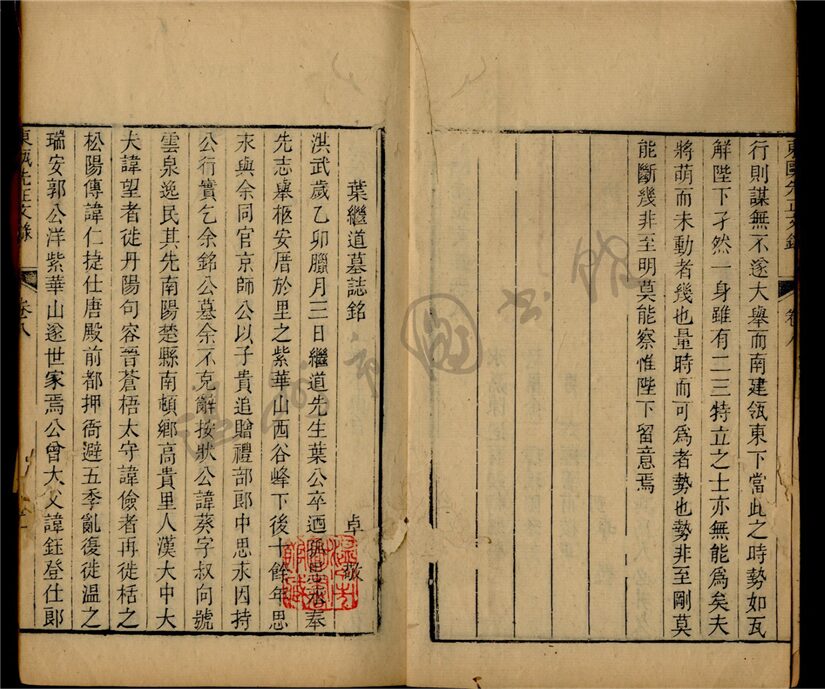 行則謀無不遂大舉而南建瓴東下當此之時勢如瓦
解陛下孑然一身雖有二三特立之士亦無能爲矣夫
將萌而未動者幾也量時而可爲者勢也勢非至剛莫
能斷幾非至明莫能察惟陛下留意焉
東甌先正文錄 卷八
葉繼道墓誌銘
卓敬
洪武歲乙卯臘月三日繼道先生葉公卒迺嗣思齊奉
先志舉柩安厝於里之紫華山西谷峰下後十餘年思
永與余同官京師公以子貴追贈禮部郎中思永因持
公行實乞余銘公墓余不克辭按狀公諱葵字叔向號
雲泉逸民其先南陽楚縣南頓鄉高貴里人漢大中大
夫諱望者徙丹陽句容晉蒼梧太守諱儉者再徙栝之
松陽傳諱仁捷仕唐殿前都押衙避五季亂復徙温之
瑞安郭公洋紫華山遂世家焉公曾大父諱鈺登仕郎
東甌先正文錄 卷八